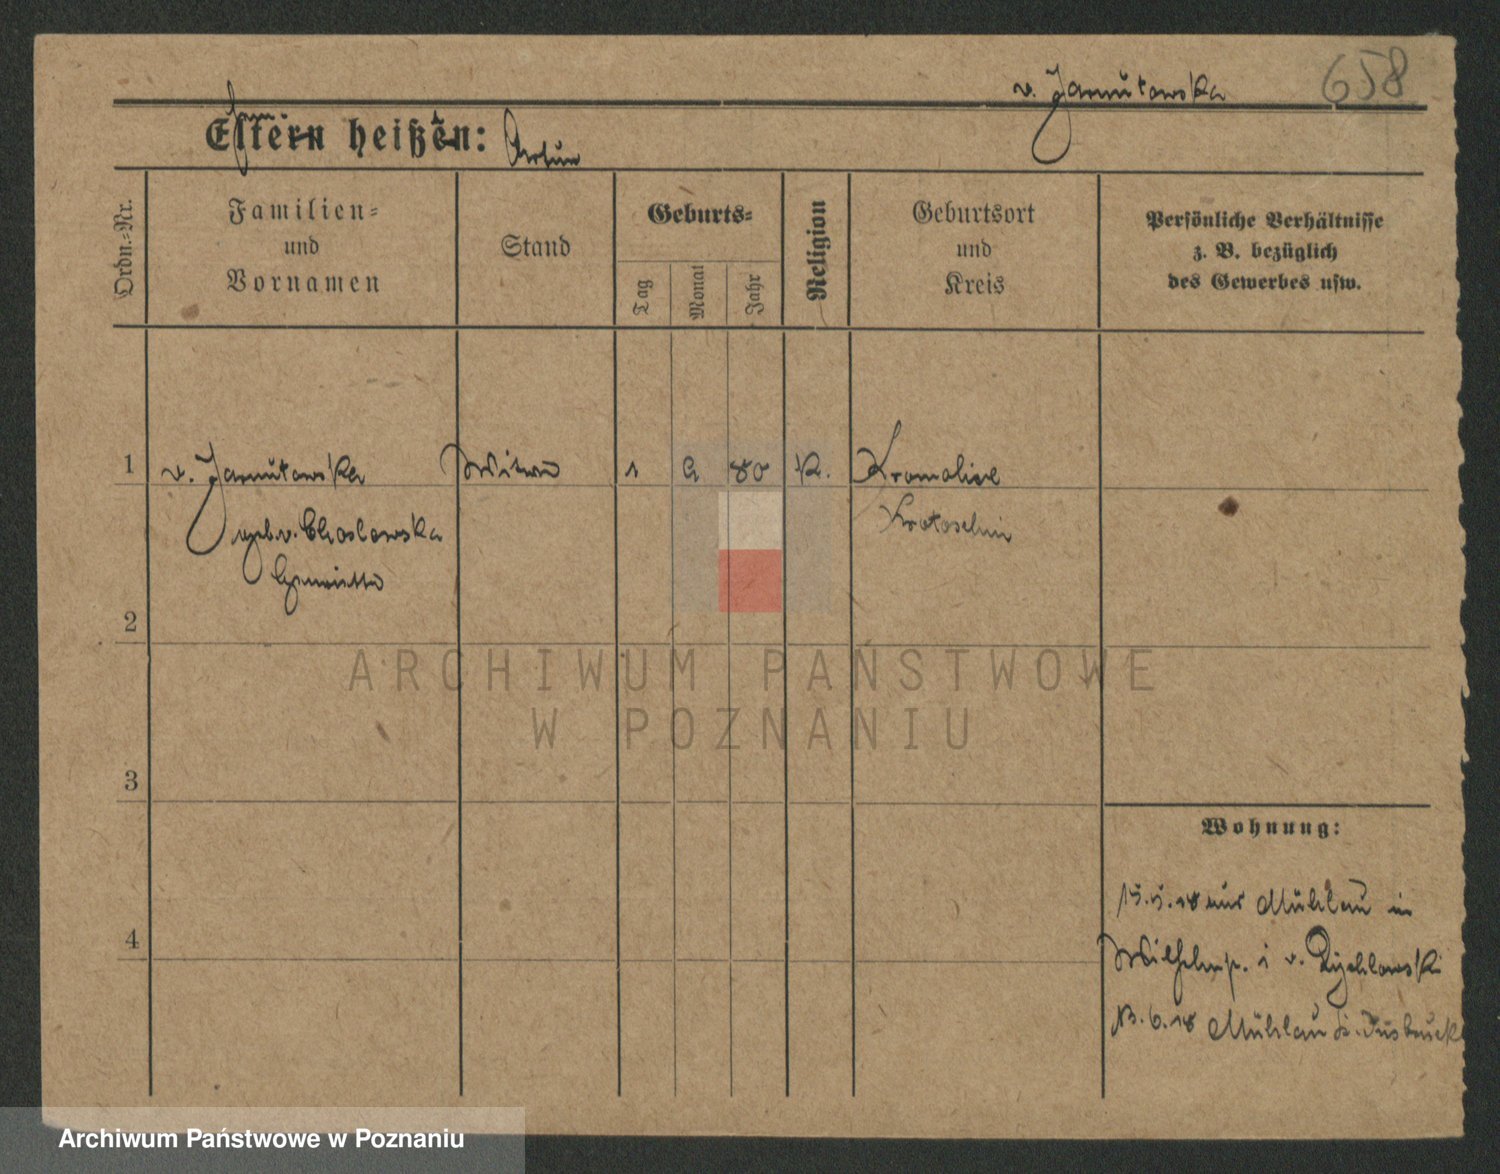 v. Janutowska 658
Eltern heißen: Artur
Ordn.-Nr.
Familien-
und
Vornamen
Stand
Geburts-
Tag
Monat
Jahr
Religion
Geburtsort
und
Kreis
Persönliche Verhältnisse
z. B. bezüglich
des Gewerbes usw.
1 v. Janutowska Witwe 1 9 80 K. Kromolice
geb. v. Choslowska Krotoschin
Henriette
2
3
4
Wohnung:
15.5.18 aus Mühlau in
Wilhelmstr. v. Rychlowski
13.6.18 Mühlau b. Insbruck
ARCHIWUM PAŃSTWOWE
W POZNANIU
Archiwum Państwowe w Poznaniu